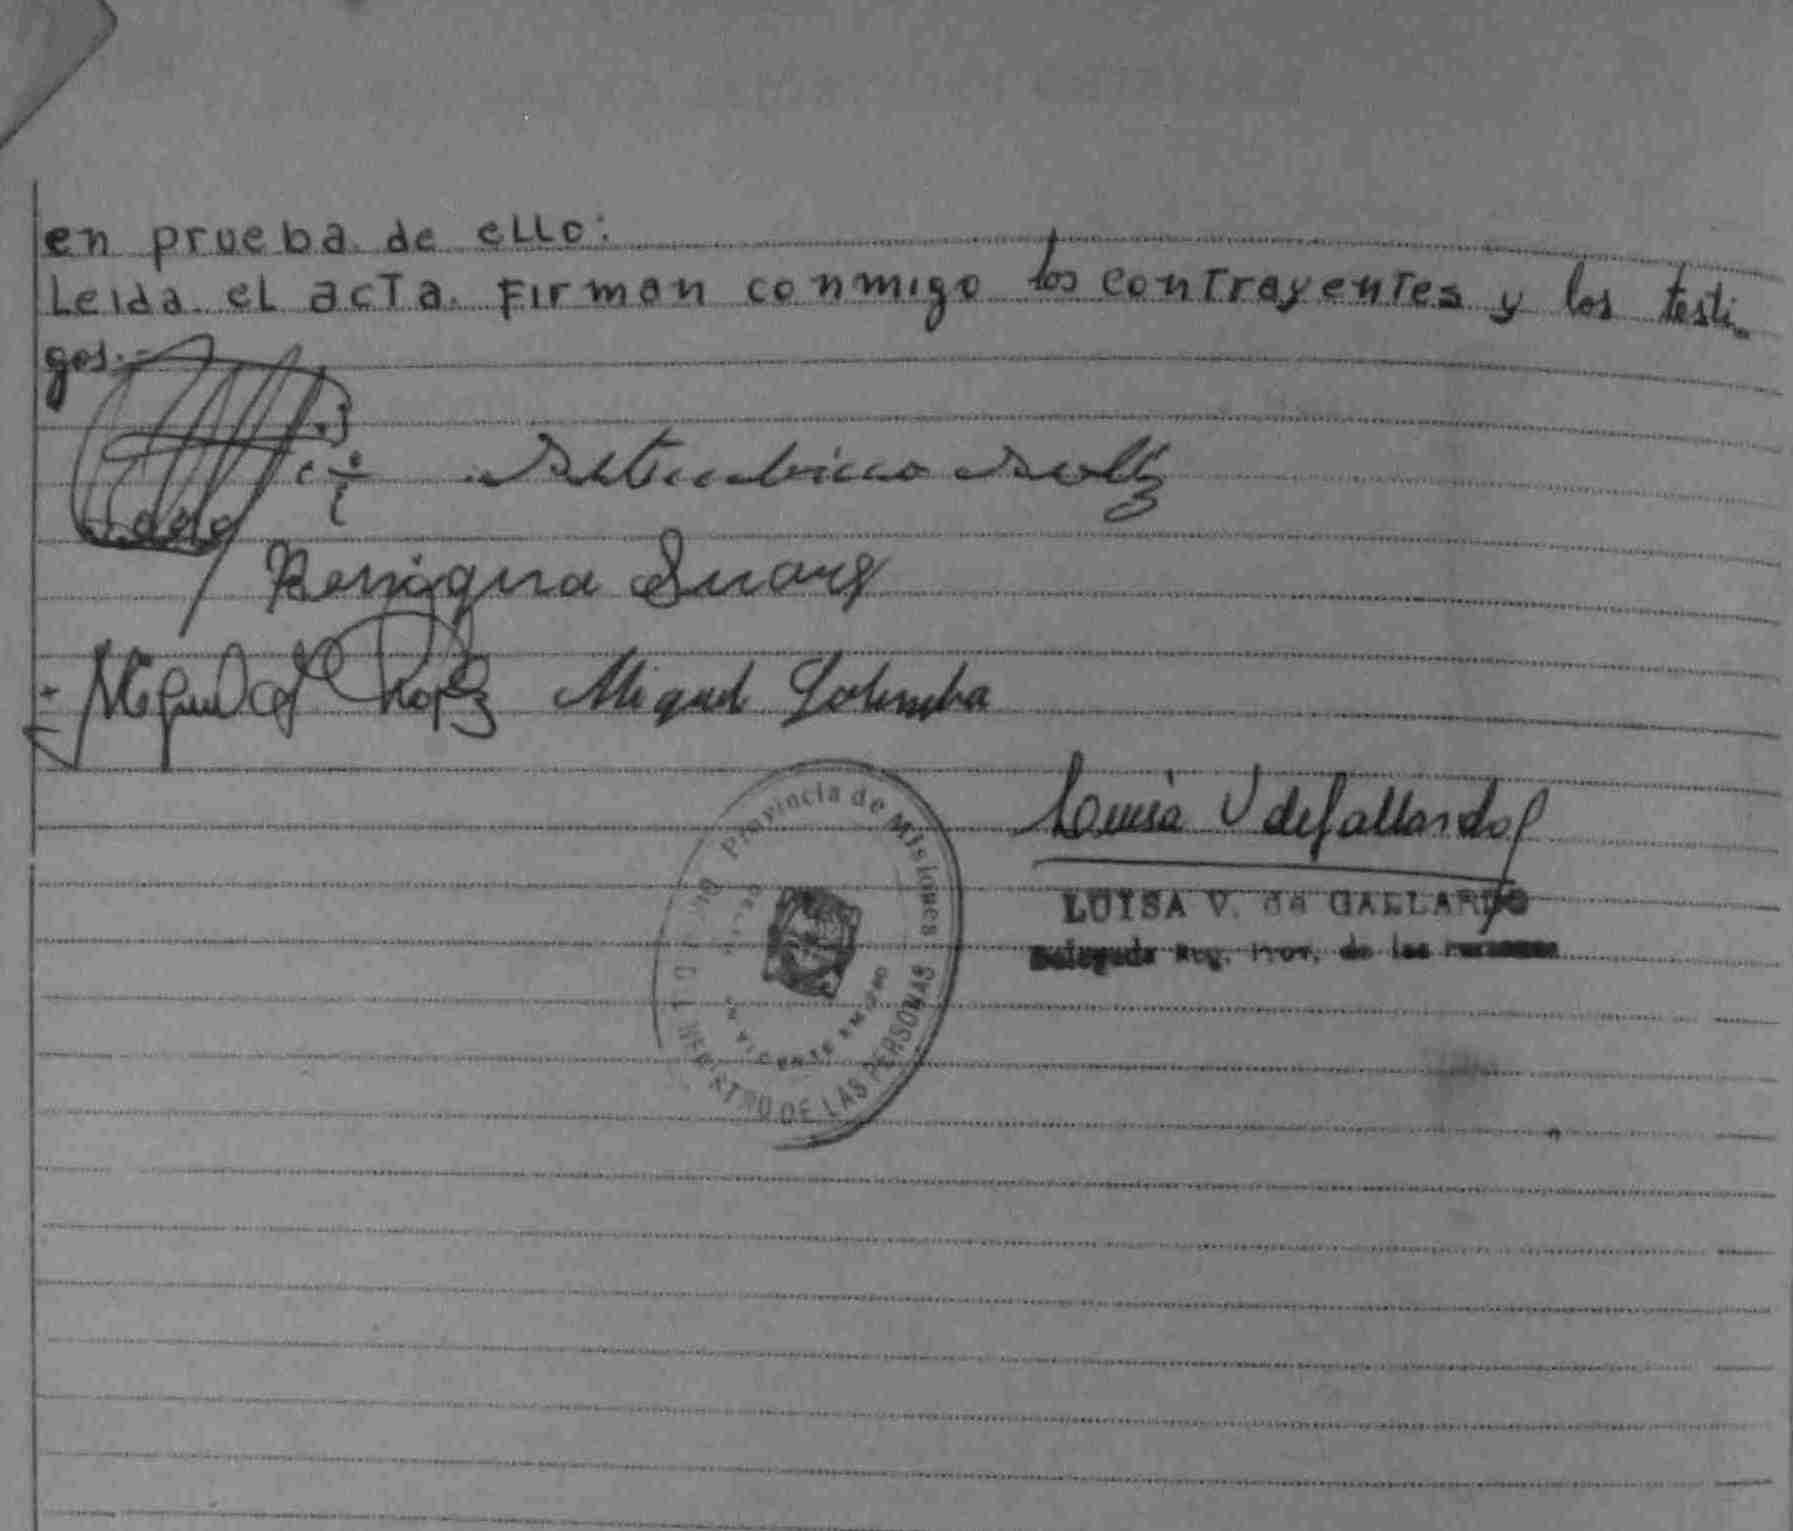 en prueba de ello:
Leida el acta firman conmigo los contrayentes y los testi-
gos.-
Benigna Suarez
Miguel A Lopez Miguel
Luisa V de Gallardo
LUISA V. de GALLARDO
Delegada Reg. Prov. de las Personas
Provincia de Misiones
REGISTRO DE LAS PERSONAS
VICENTE